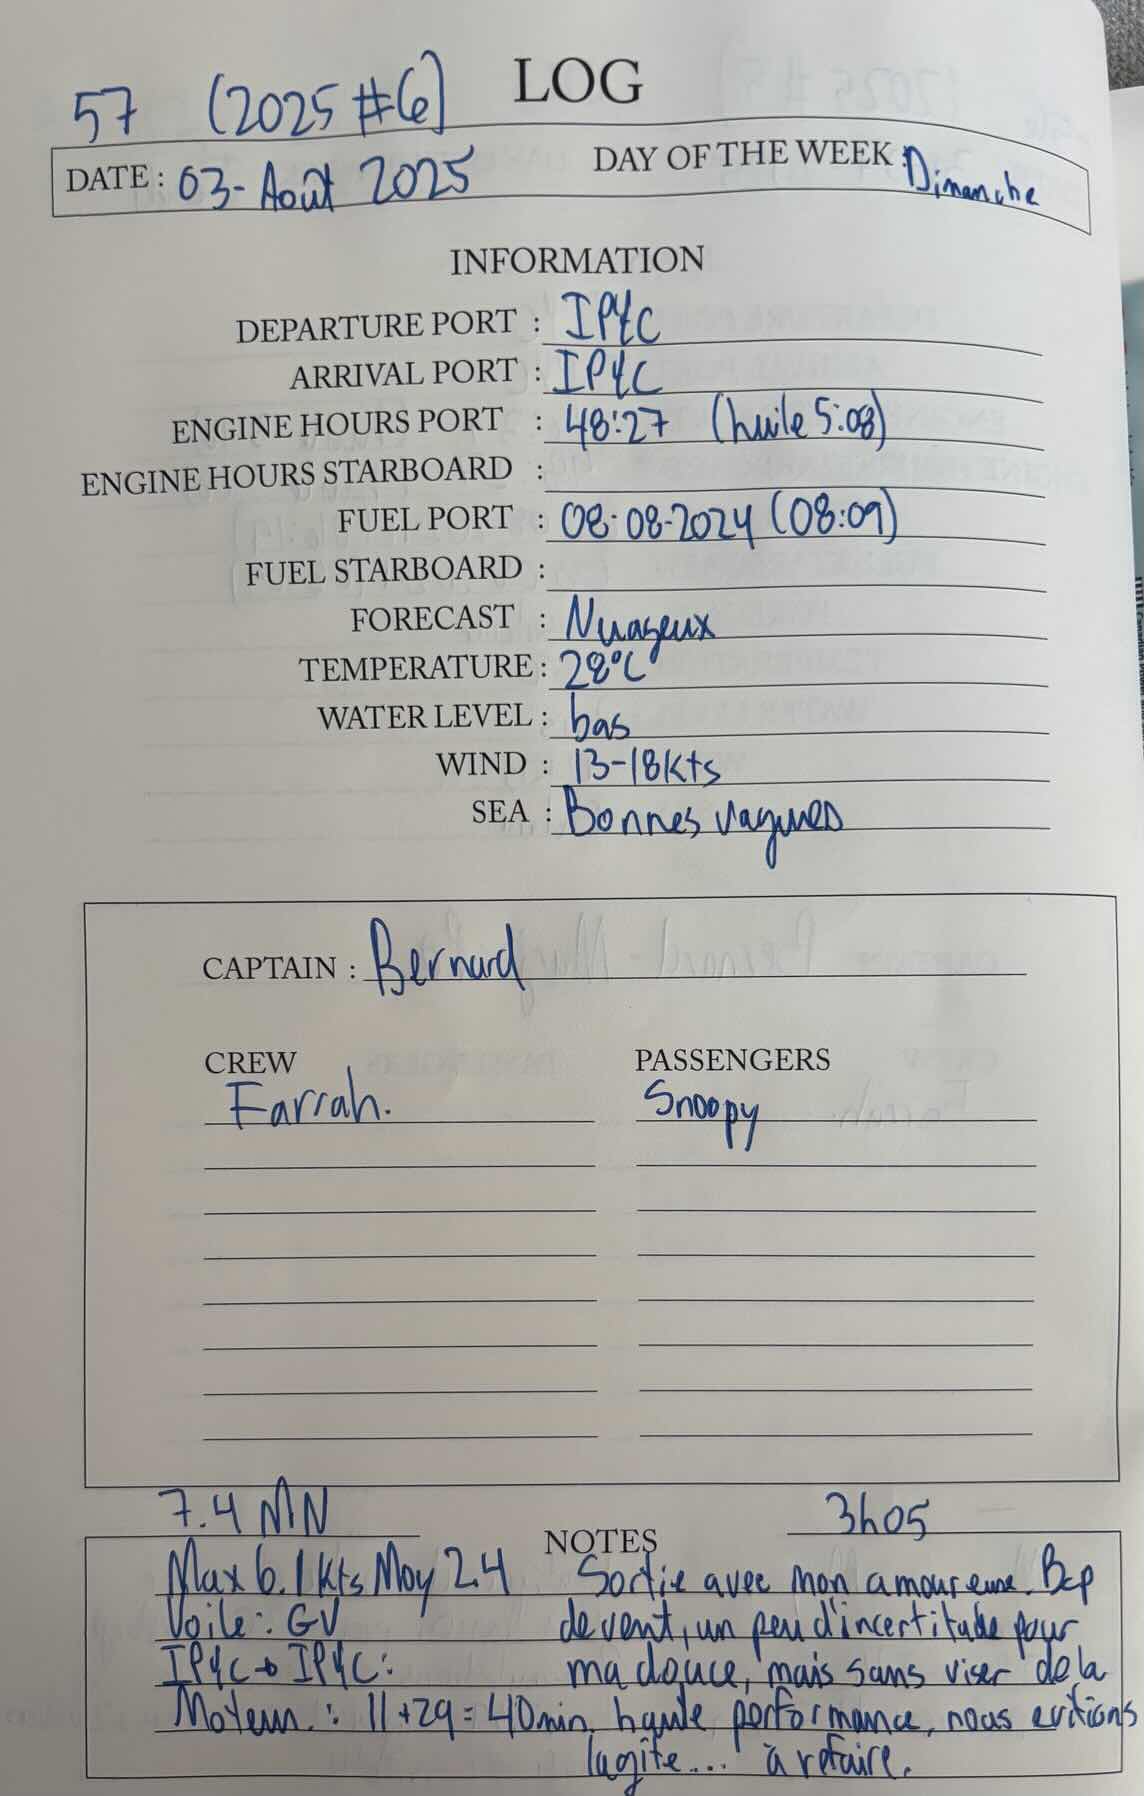 LOG
57 (2025 #6)
DATE : 03-Août 2025 DAY OF THE WEEK : Dimanche
INFORMATION
DEPARTURE PORT : IPYC
ARRIVAL PORT : IPYC
ENGINE HOURS PORT : 48:27 (huile 5:08)
ENGINE HOURS STARBOARD :
FUEL PORT : 08-08-2024 (08:09)
FUEL STARBOARD :
FORECAST : Nuageux
TEMPERATURE : 28°C
WATER LEVEL : bas
WIND : 13-18kts
SEA : Bonnes vagues
CAPTAIN : Bernard
CREW PASSENGERS
Farrah. Snoopy
7.4 MN 3h05
NOTES
Max 6.1kts Moy 2.4
Voile : GV
IPYC → IPYC :
Moteur : 11+29=40min.
Sortie avec mon amoureuse. Bcp
de vent, un peu d'incertitude pour
ma douce, mais sans viser de la
haute performance, nous evitions
la gite... à refaire.